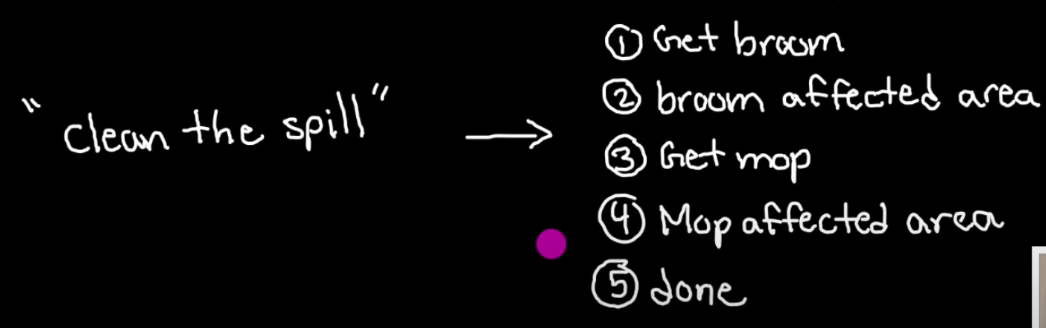 "clean the spill" →
① Get broom
② broom affected area
③ Get mop
④ Mop affected area
⑤ done